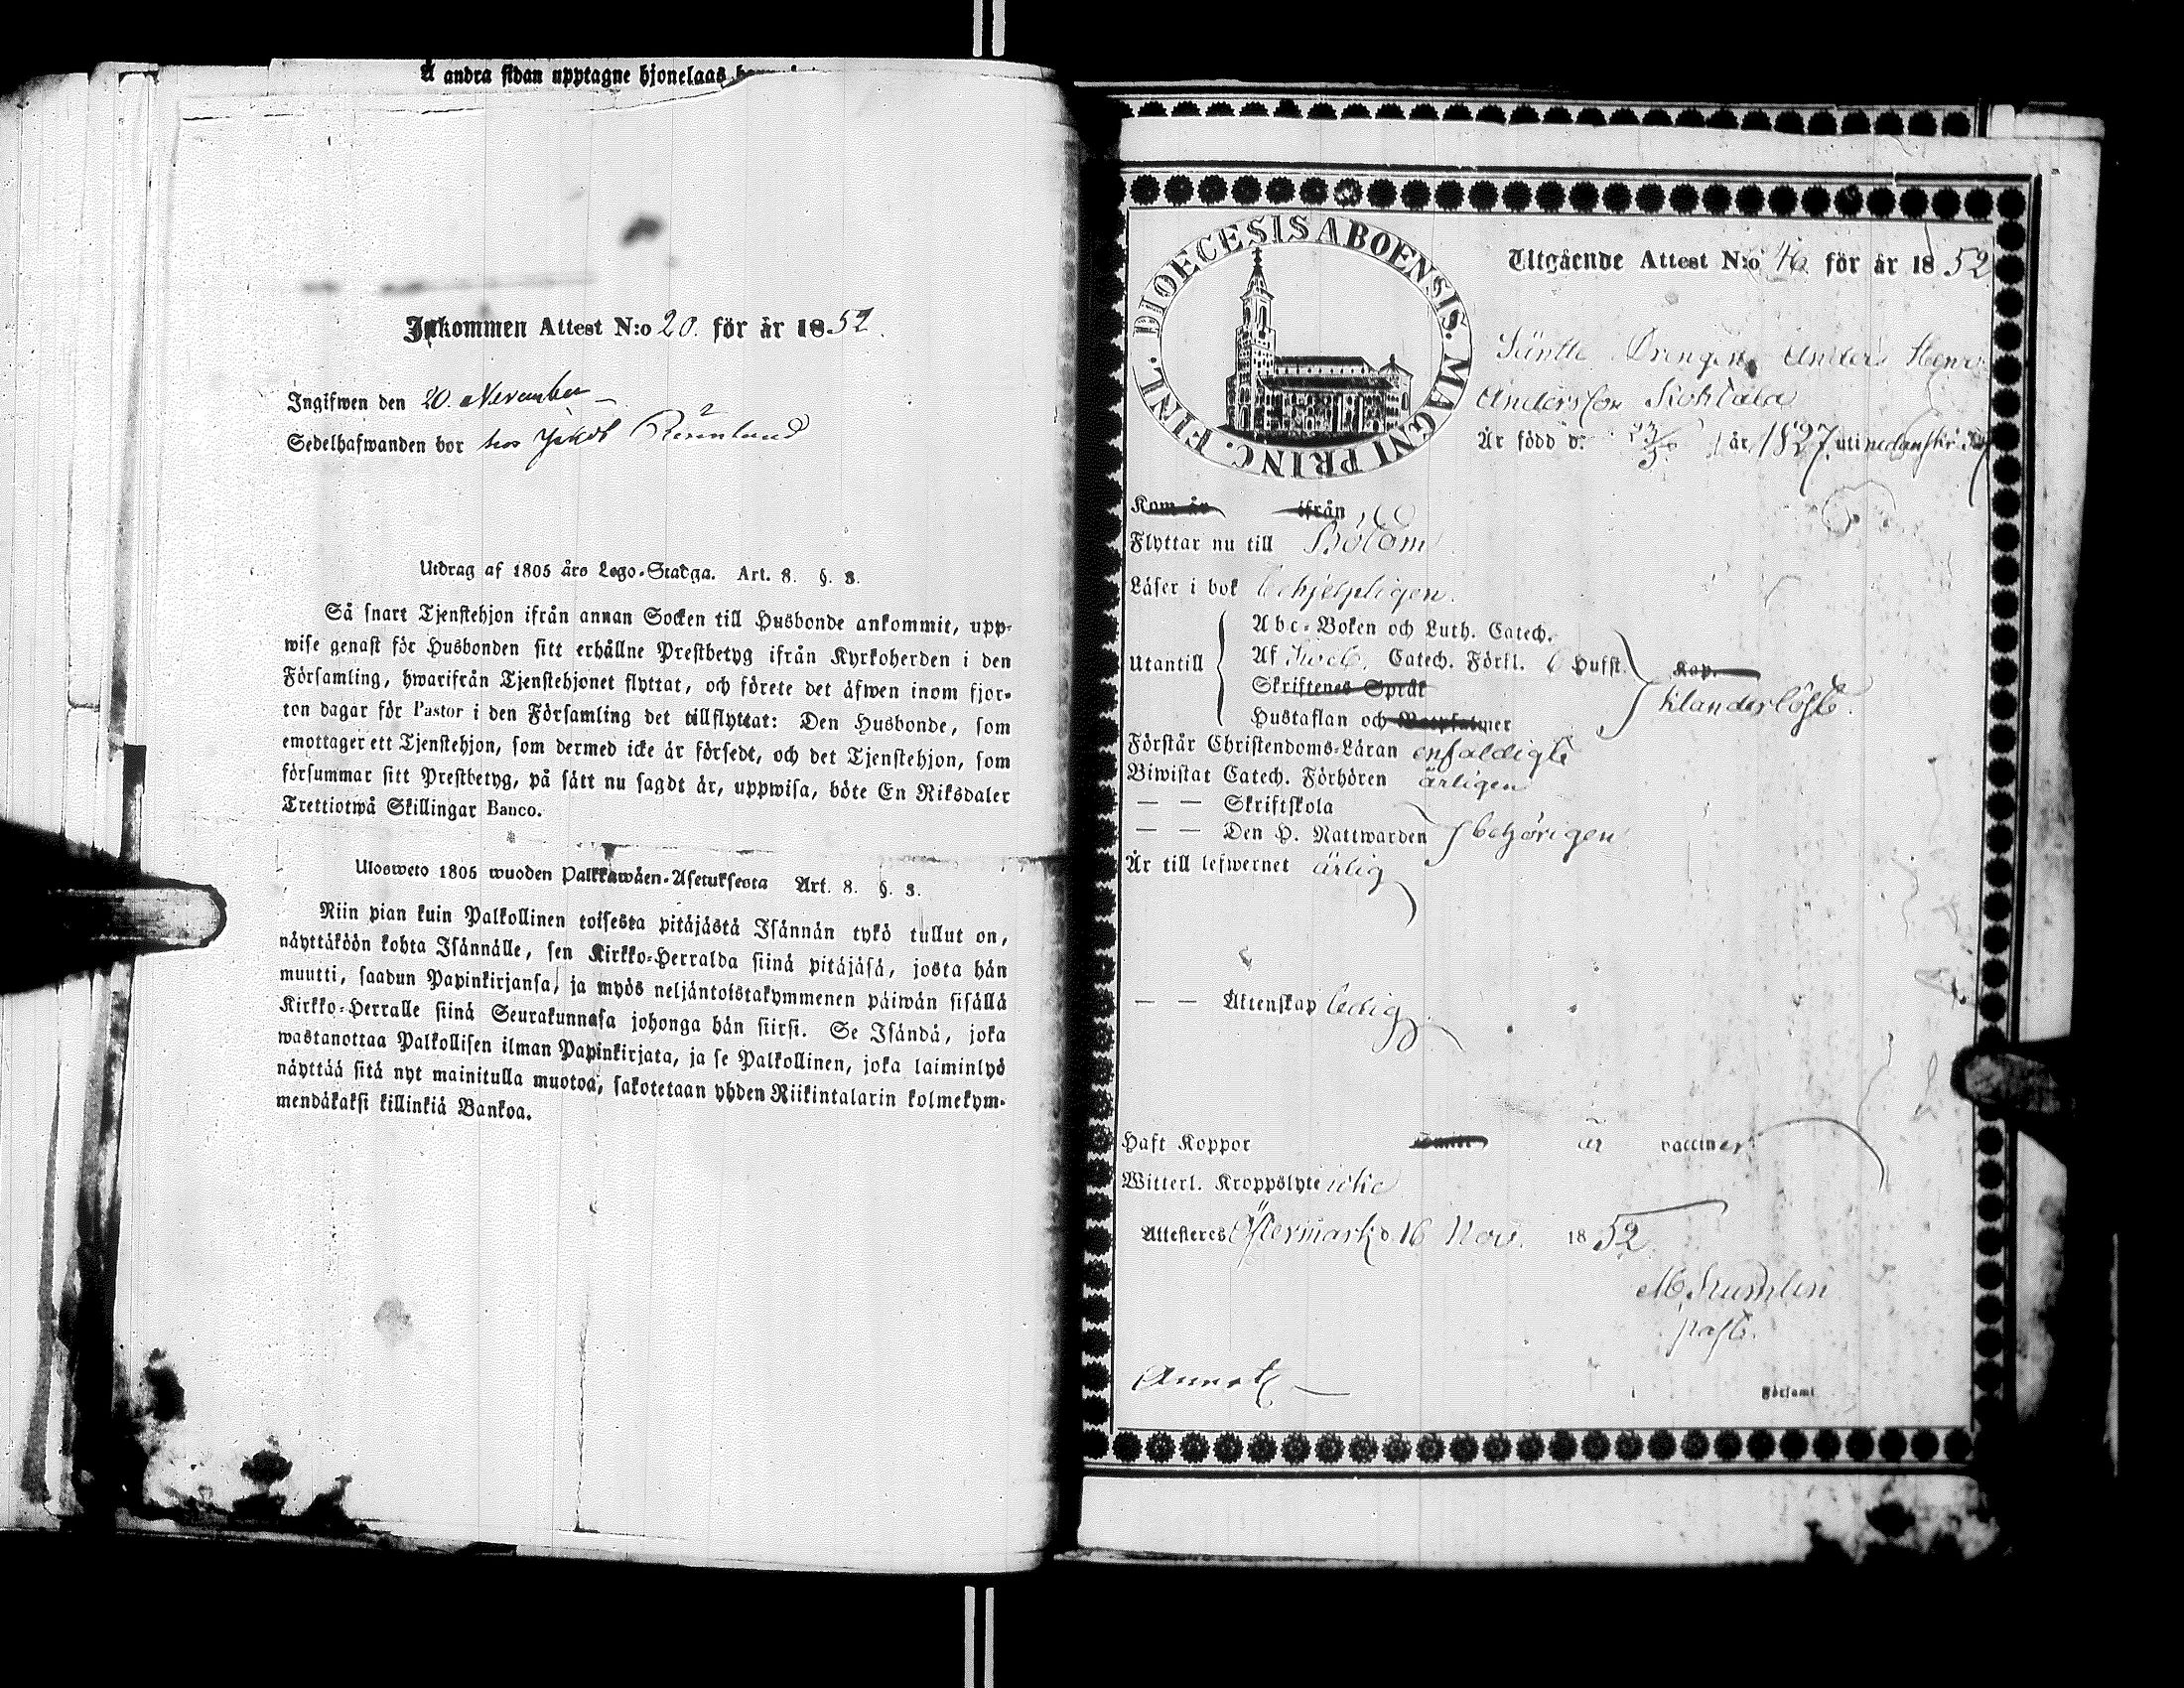 Å andra sidan upptagne hjonelaas
Inkommen Attest N:o 20. för år 1852.
Ingifwen den 20. November
Sedelhafwanden bor hos Jakob Rönnlund
Utdrag af 1805 års Lego-Stadga. Art. 8. §. 3.
Så snart Tjenstehjon ifrån annan Socken till Husbonde ankommit, upp-
wise genast för Husbonden sitt erhållne Prestbetyg ifrån Kyrkoherden i den
Församling, hwarifrån Tjenstehjonet flyttat, och förete det äfwen inom fjor-
ton dagar för Pastor i den Församling det tillflyttat: Den Husbonde, som
emottager ett Tjenstehjon, som dermed icke är försedt, och det Tjenstehjon, som
försummar sitt Prestbetyg, på sätt nu sagdt är, uppwisa, böte En Riksdaler
Trettiotwå Skillingar Banco.
Ulosweto 1805 wuoden Palkkawäen-Asetuksesta Art. 8. §. 3.
Niin pian kuin Palkollinen toisesta pitäjästä Isännän tykö tullut on,
näyttäköön kohta Isännälle, sen Kirkko-Herralda siinä pitäjäsä, josta hän
muutti, saadun Papinkirjansa, ja myös neljäntoistakymmenen päiwän sisällä
Kirkko-Herralle siinä Seurakunnasa johonga hän siirsi. Se Isändä, joka
wastanottaa Palkollisen ilman Papinkirjata, ja se Palkollinen, joka laiminlyö
näyttää sitä nyt mainitulla muotoa, sakotetaan yhden Riikintalarin kolmekym-
mendäkaksi killinkiä Bankoa.
DIOECESIS ABOENSIS. MAGNI PRINC. FINL.
Utgående Attest N:o 46 för år 1852
Drengen Anders Henr.
Andersson
Är född d. år 1827. uti nedanskr.
Kom år ifrån
Flyttar nu till Bötom
Läser i bok behjelpligen.
Abc-Boken och Luth. Catech.
Utantill Af Catech. Förkl. Hufst. Kap.
Skriftenes Språk
klanderlöst.
Hustaflan och Botpsalmer
Förstår Christendoms-Läran enfaldigt
Biwistat Catech. Förhören årligen
— — Skriftskola
— — Den H. Nattwarden behörigen
Är till lefwernet ärlig
— — Äktenskap ledig
Haft Koppor är vacciner
Witterl. Kroppslyte icke
Attesteras Östermark d. 16 Nov. 1852
past.
Annot.
Församl.